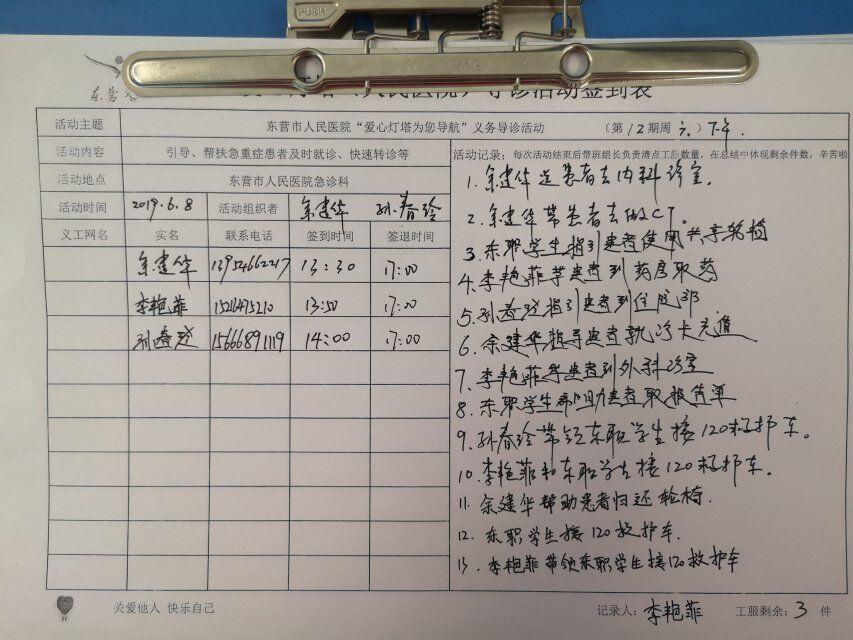 PUSH
东营
（人民医院）导诊活动签到表
活动主题 东营市人民医院“爱心灯塔为您导航”义务导诊活动 （第12期周六）下午
活动内容 引导、帮扶急重症患者及时就诊、快速转诊等
活动地点 东营市人民医院急诊科
活动时间 2019.6.8 活动组织者 余建华 孙春玲
义工网名 实名 联系电话 签到时间 签退时间
余建华 13954662217 13:30 17:00
李艳菲 15216475210 13:50 17:00
孙春玲 15666891119 14:00 17:00
活动记录：每次活动结束后带班组长负责清点工服数量，在总结中体现剩余件数，辛苦啦
1. 余建华送患者去内科诊室。
2. 余建华带患者去做CT。
3. 东职学生指引患者使用共享轮椅
4. 李艳菲带患者到药房取药
5. 孙春玲指引患者到住院部
6. 余建华指导患者就诊卡充值
7. 李艳菲带患者到外科诊室
8. 东职学生帮助患者取报告单
9. 孙春玲带领东职学生接120救护车。
10. 李艳菲和东职学生接120救护车。
11. 余建华帮助患者归还轮椅.
12. 东职学生接120救护车.
13. 李艳菲带领东职学生接120救护车
关爱他人 快乐自己
记录人：李艳菲 工服剩余：3 件